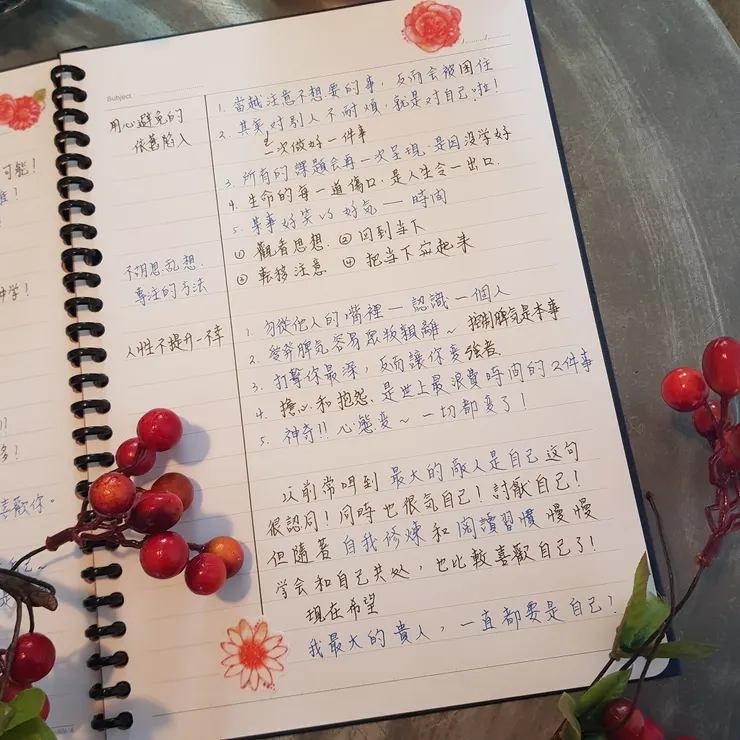 可能!
喜歡你。
Subject
用心避免的
依舊陷入
1. 當越注意不想要的事,反而會被困住
2. 其實对別人不耐煩,就是对自己啦!
一次做好一件事
3. 所有的課題会再一次呈現.是因没学好
4. 生命的每一道傷口.是人生令一出口.
5. 某事好笑 vs 好気 — 時間
不胡思乱想.
專注的方法
① 觀看思想. ② 回到当下
③ 転移注意 ④ 把当下起来
人性不提升-不幸
1. 勿從他人的嘴裡 — 認識一個人
2. 發脾気容易眾叛親離~ 控制脾気是本事
3. 打擊你最深,反而讓你变強者
4. 擔心和抱怨.是世上最浪費時間的2件事
5. 神奇!! 心態变~ 一切都变了!
以前常听到 最大的敵人是自己 這句
很認同! 同時也很気自己! 討厭自己!
但隨著 自我修煉 和 閱讀習慣 慢慢
学会和自己共处,也比較喜歡自己了!
現在希望
我最大的貴人,一直都要是自己!